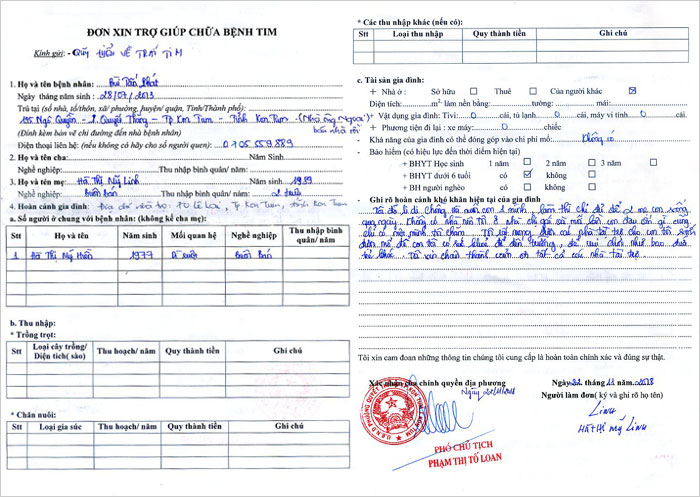 ĐƠN XIN TRỢ GIÚP CHỮA BỆNH TIM
Kính gửi: - Quỹ HIỂU VỀ TRÁI TIM
1. Họ và tên bệnh nhân: Bùi Tấn Phát
Ngày tháng năm sinh: 28/07/2013
Trú tại (số nhà, tổ/thôn, xã/ phường, huyện/ quận, Tỉnh/Thành phố):
195 Ngô Quyền - P. Quyết Thắng - Tp Kon Tum - Tỉnh Kon Tum - (Nhà ông Ngoại)
bán nhà rồi
(Đính kèm bản vẽ chỉ đường đến nhà bệnh nhân)
Điện thoại liên hệ: (nếu không có hãy cho số người quen): 0705559889
2. Họ và tên cha: Năm Sinh
Nghề nghiệp: Thu nhập bình quân/ năm:
3. Họ và tên mẹ: Hà Thị Mỹ Linh Năm sinh 1989
Nghề nghiệp: Buôn bán Thu nhập bình quân/ năm: 2 triệu
4. Hoàn cảnh gia đình: Địa chỉ nhà trọ: 70 Lê Lai, Tp Kon Tum, tỉnh Kon Tum
a. Số người ở chung với bệnh nhân: (không kể cha mẹ):
Stt Họ và tên Năm sinh Mối quan hệ Nghề nghiệp Thu nhập bình quân/ năm
1 Hà Thị Mỹ 1977 Dì ruột Buôn Bán
b. Thu nhập:
* Trồng trọt:
Stt Loại cây trồng/ Diện tích( sào) Thu hoạch/ năm Quy thành tiền Ghi chú
* Chăn nuôi:
Stt Loại gia súc Thu hoạch/ năm Quy thành tiền Ghi chú
* Các thu nhập khác (nếu có):
Stt Loại thu nhập Quy thành tiền Ghi chú
c. Tài sản gia đình:
+ Nhà ở: Sở hữu Thuê Của người khác
Diện tích: m², làm nền bằng: tường: mái:
+ Vật dụng gia đình: Tivi: 0 cái, tủ lạnh 0 cái, máy vi tính 0 cái
+ Phương tiện đi lại: xe máy: 0 chiếc
- Khả năng của gia đình có thể đóng góp vào chi phí mổ: Không có
- Bảo hiểm (có hiệu lực đến thời điểm hiện tại)
+ BHYT Học sinh 1 năm 2 năm 3 năm
+ BHYT dưới 6 tuổi có không
+ BH người nghèo có không
- Ghi rõ hoàn cảnh khó khăn hiện tại của gia đình
Tôi đã li dị chồng tôi nuôi con 1 mình, làm thì chỉ đủ để 2 mẹ con sống
qua ngày. Không có tiền
chỉ có một mình tôi chăm. Tôi rất mong được các nhà tài trợ cho con tôi sớm
được mổ để con tôi có sức khoẻ để đến trường, để vui chơi như bao đứa
trẻ khác. Tôi xin chân thành cảm ơn tất cả các nhà tài trợ.
Tôi xin cam đoan những thông tin chúng tôi cung cấp là hoàn toàn chính xác và đúng sự thật.
Xác nhận của chính quyền địa phương
Ngày 22/11/2018
Ngày 22 tháng 11 năm 2018
Người làm đơn( ký và ghi rõ họ tên)
Linh
Hà Thị Mỹ Linh
PHÓ CHỦ TỊCH
PHẠM THỊ TỐ LOAN